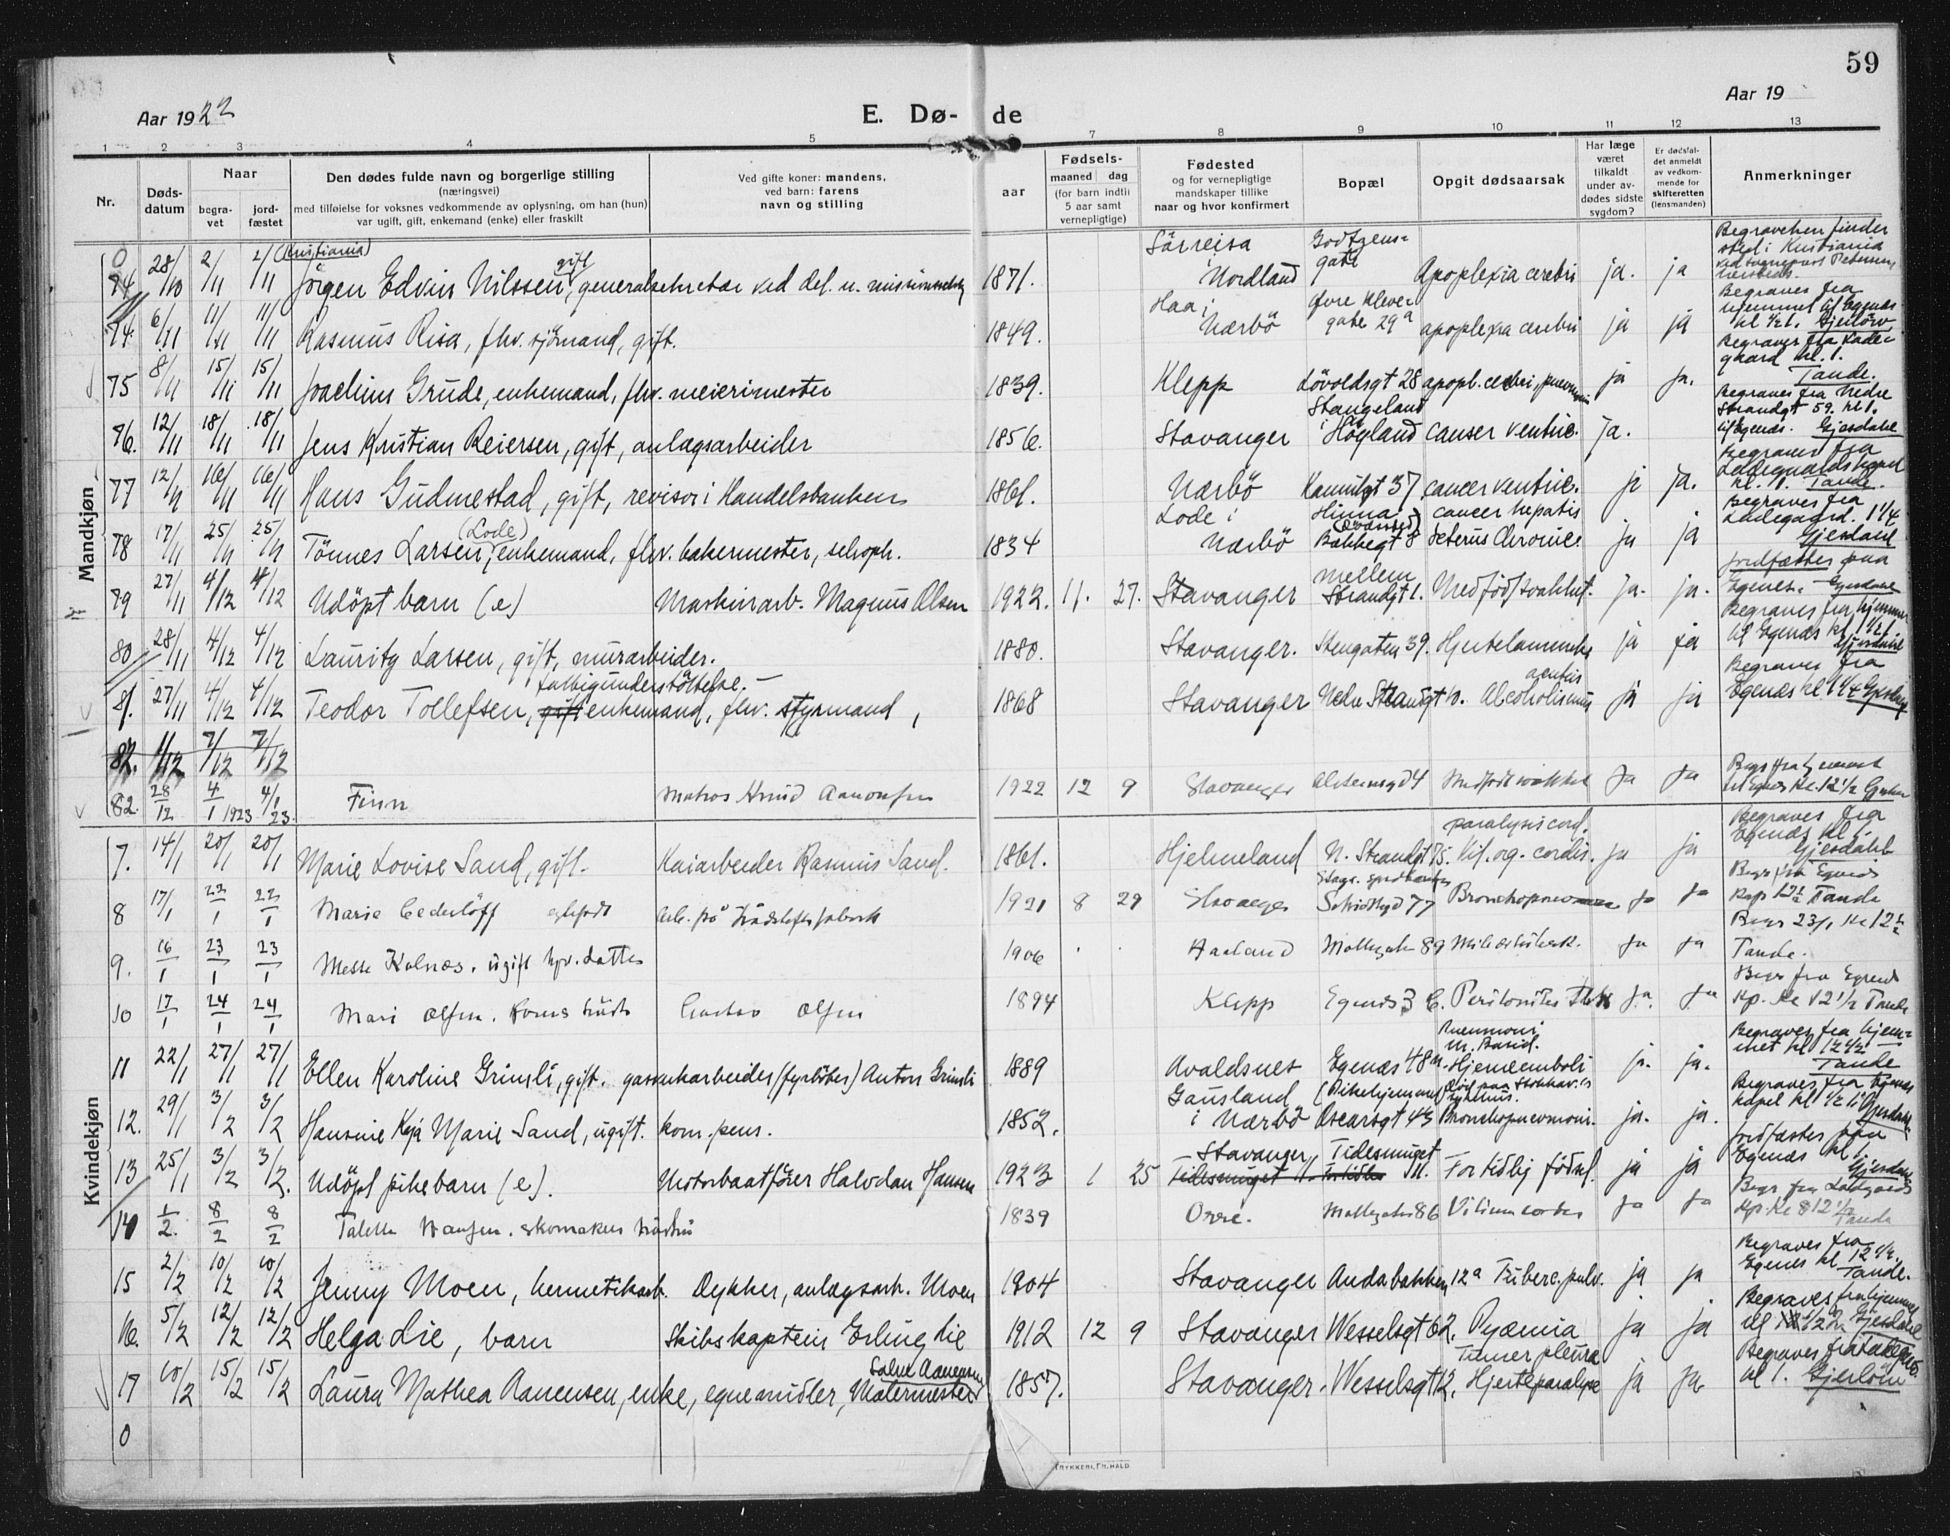 59
Aar 1922
E. Dø- de
Aar 19
1 2 3 4 5 6 7 8 9 10 11 12 13
Nr.
Døds-datum
Naar
begra-vet
jord-fæstet
Den dødes fulde navn og borgerlige stilling
(næringsvei)
med tilføielse for voksnes vedkommende av oplysning, om han (hun)
var ugift, gift, enkemand (enke) eller fraskilt
Ved gifte koner: mandens,
ved barn: farens
navn og stilling
aar
Fødsels-
maaned dag
(for barn indtil
5 aar samt
vernepligtige)
Fødested
og for vernepligtige
mandskaper tillike
naar og hvor konfirmert
Bopæl
Opgit dødsaarsak
Har læge
været
tilkaldt
under av-
dødes sidste
sygdom?
Er dødsfal-
det anmeldt
av vedkom-
mende for
skifteretten
(lensmanden)
Anmerkninger
Mandkjøn
0 28/10 2/11 2/11 (Kristiania) Jörgen Edvin Nilssen, gift, generalsekretær ved det n. missionsselsk 1871. Sörreisa i Nordland Apoplexia cerebri ja. ja Begravelsen finder sted i Kristiania
74. 6/11 11/11 11/11 Rasmus Risa, fhv. sjömand, gift. 1849. Haa i Nærbö Øvre Klevergate 29a apoplexia cerebri ja ja Begraves fra hjemmet til Egenæs kl ½1. Gjerlöw
75 8/11 15/11 15/11 Joachim Grude, enkemand, fhv. meierimester 1839. Klepp Lövoldsgt 28 apopl. cerebri, pneumoni ja ja. Begraves fra Ladegaard kl. 1. Tande.
76. 12/11 18/11 18/11 Jens Kristian Reiersen, gift, anlægsarbeider 1856. Stavanger Stangeland i Högland cancer ventric. Ja. Begraves fra Nedre Strandgt 59. kl 1. til Egenæs. Gjesdahl
77 12/11 16/11 16/11 Hans Gudmestad, gift, revisor i Handelsbanken 1861. Nærbö Kannikgt 37 cancer ventric. cancer hepatis ja ja. Begraves fra Ladegaards kapel kl. 1. Tande.
78 17/11 25/11 25/11 Tönnes Larsen (Lode), enkemand, fhv. bakermester, 1834 Lode i Nærbö Hinna Bakkegt 8 Icterus chronic. ja ja Begraves fra Ladegaard. 1¼ Gjesdahl
79 27/11 4/12 4/12 Udöpt barn (e) Maskinarb. Magnus Olsen 1922. 11. 27. Stavanger mellem Strandgt 1. Medfödt svakhet. ja. ja. Jordfæstes paa Egenes. Gjesdahl
80 28/11 4/12 4/12 Lauritz Larsen, gift, murarbeider. 1880. Stavanger. Stengaten 39. Hjertelammelse ja ja Begraves fra hjemmet til Egenæs kl 1½ Gjesdahl
81. 27/11 4/12 4/12 Teodor Tollefsen, gift enkemand, fhv. styrmand, fattigunderstöttelse. 1868 Stavanger Nedre Strandgt Alcoholismus ja ja Begraves fra Egenæs kl 1¼ Gjesdahl
82. 1/12 7/12 7/12
82. 28/12 4/1 1923 4/1 23. Finn Matros Knud Aanonsen 1922 12 9 Stavanger Medfödt svakhet ja ja Begr fra hjemmet til Egenes Kl. 12½
Kvindekjøn
7. 14/1 20/1 20/1 Marie Lovise Sand, gift. Kaiarbeider Rasmus Sand. 1861. Hjelmeland N. Strandgt 75. paralysis cord. Vit. og. cordis. ja ja Begraves fra Egenæs kl 1. Gjesdahl
8 17/1 22/1 22/1 Marie Cederlöff egtefödt 1921 8 29 Stavanger 77 Bronchopneumoni ja ja Begr fra Egenes Kap 12½ Tande
9. 16/1 23/1 23/1 Kolnæs. ugift 1906 . . Haaland Möllegaten 89 ja ja Begr 23/1 Kl 12½ Tande.
10 17/1 24/1 24/1 Mari Olsen. Gustav Olsen 1894 Klepp Egenæs 3 Peritonitis ja. ja Begr fra Egenes Kp. Kl 12½ Tande
11 22/1 27/1 27/1 Ellen Karoline Grimsli, gift. gasverkarbeider (fyrböter) Anton Grimsli 1889 Avaldsnes Egenæs 48 Pneumoni Hjerneemboli ja. ja. Begraves fra hjemmet kl 12½ Tande
12. 29/1 3/2 3/2 Hansine Kaja Marie Sand, ugift. kom. pens. 1852. Gausland i Nærbö Oscarsgt 43 Bronchopneumoni. ja. ja. Begraves fra Egenæs kapel kl ½1. Gjesdahl
13 25/1 3/2 3/2. Udöpt pikebarn (e). Motorbaatförer Halvdan Hansen 1923 1 25 Stavanger Tidesmuget Tidesmuget 11. For tidlig födsel. ja ja Jordfæstes paa Egenæs kl 1. Gjesdahl
14 1/2. 8/2 8/2 Hansen. skomakers 1839 Orre. Möllegaten 86 Vitium cordis ja ja Begr fra Ladegaards Kp. Kl 12½ Tande
15 2/2 10/2 10/2 Jenny Moen, hermetikarb. Dykker, anlægsarb. Moen 1904 Stavanger Andabakken 12a Tuberc. pulv. ja ja Begraves fra Egenes kl 12½. Tande.
16. 5/2 12/2 12/2 Helga Lie, barn Skibskaptein Erling Lie 1912 12 9 Stavanger Wesselsgt 62. Pyæmia ja ja Begraves fra hjemmet Gjesdahl
17 10/2 15/2 15/2 Laura Mathea Aanensen, enke, egne midler, Malermester Salve Aanensen 1857. Stavanger. Wesselsgt 12. Tumor pleura Hjerteparalyse ja ja Begraves fra Ladegrd. kl 1. Gjerlöw
0
TRYKKERI, FR. HALD